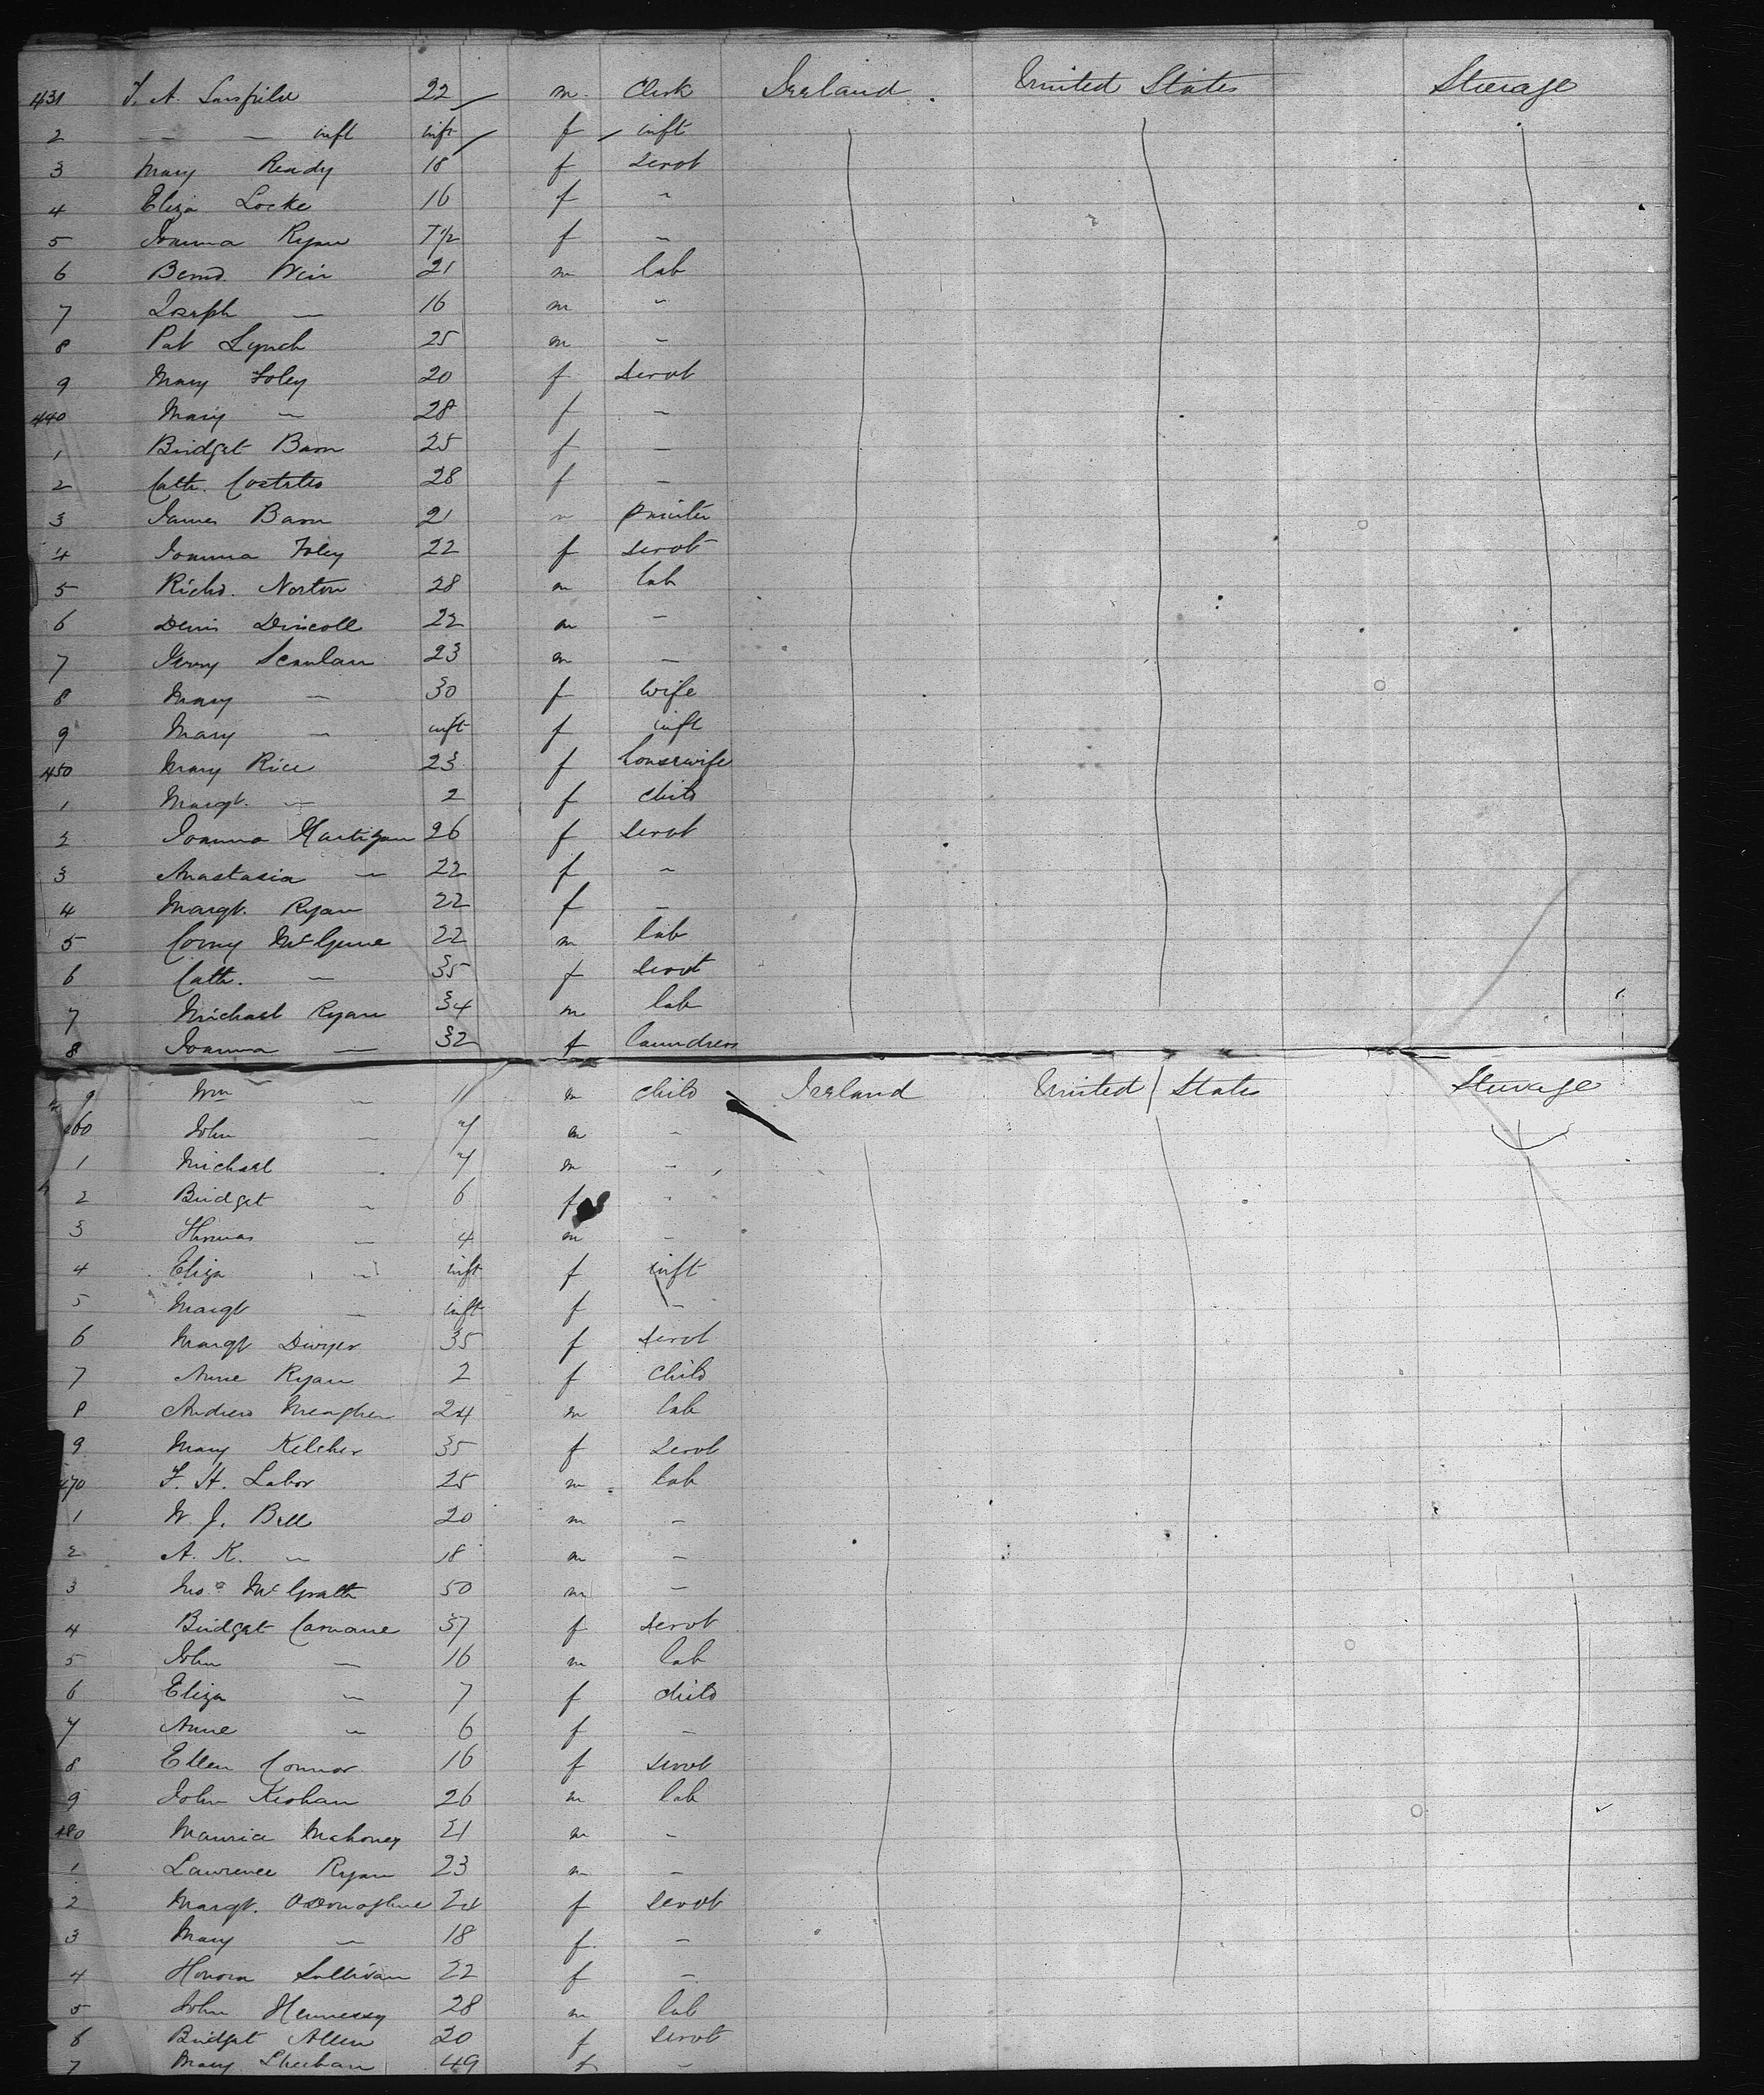 431 T. A. Sarsfield 22 m Clerk Ireland United States Steerage
2 — — inft inft f inft
3 Mary Ready 18 f Servt
4 Eliza Locke 16 f "
5 Joanna Ryan 7½ f —
6 Bernd. Weir 21 m lab
7 Joseph — 16 m "
8 Pat Lynch 25 m —
9 Mary Foley 20 f Servt
440 Mary — 28 f —
1 Bridget Barn 25 f —
2 Cath. Costello 28 f —
3 James Barn 21 m
4 Joanna Foley 22 f servt
5 Richd. Norton 28 m lab
6 Denis Driscoll 22 m —
7 Jerry Scanlan 23 m —
8 Mary — 30 f wife
9 Mary — inft f inft
450 Mary Rice 23 f housewife
1 Margt. — 2 f child
2 Joanna Hartigan 26 f servt
3 Anastasia — 22 f —
4 Margt. Ryan 22 f —
5 Corny 22 m lab
6 Cath. — 35 f servt
7 Michael Ryan 34 m lab
8 Joanna — 32 f laundress
9 Wm — 11 m child Ireland United States Steerage
460 John — 7 m -
1 Michael - 7 m -
2 Bridget — 6 f -
3 Thomas — 4 m -
4 Eliza — inft f inft
5 Margt — inft f —
6 Margt Dwyer 35 f servt
7 Anne Ryan 2 f child
8 Andrew Meagher 24 m lab
9 Mary Kelcher 35 f servt
470 F. H. Labor 25 m lab
1 W. J. Bell 20 m —
2 A. K. — 18 m —
3 McGrath 50 m —
4 Bridget Carnane 37 f servt
5 John — 16 m lab
6 Eliza — 7 f child
7 Anne — 6 f —
8 Ellen Connor 16 f servt
9 John Keohan 26 m lab
480 Maurice Mahoney 21 m -
1 Lawrence Ryan 23 m —
2 Margt. O'Donoghue 24 f servt
3 Mary — 18 f —
4 Honora Sullivan 22 f —
5 John Hennessy 28 m lab
6 Bridget Allen 20 f servt
7 Mary Sheehan 49 f —